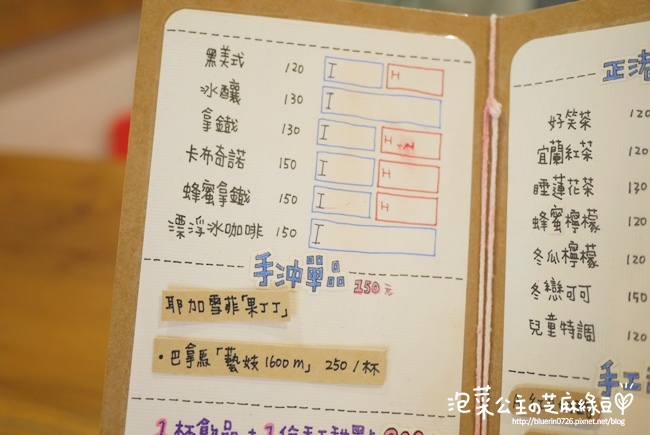 黑美式 120 I H
冰釀 130 I
拿鐵 130 I H
卡布奇諾 150 I H
蜂蜜拿鐵 150 I H
漂浮冰咖啡 150 I
手沖單品 150元
耶加雪菲「果丁丁」
•巴拿馬「藝妓1600m」 250/杯
1杯飲品+1份手工甜點
好笑茶 120
宜蘭紅茶 120
睡蓮花茶 130
蜂蜜檸檬 120
冬瓜檸檬 120
冬戀可可 150
兒童特調 120
手工
泡菜公主の芝麻綠豆
http://bluerin0726.pixnet.net/blog